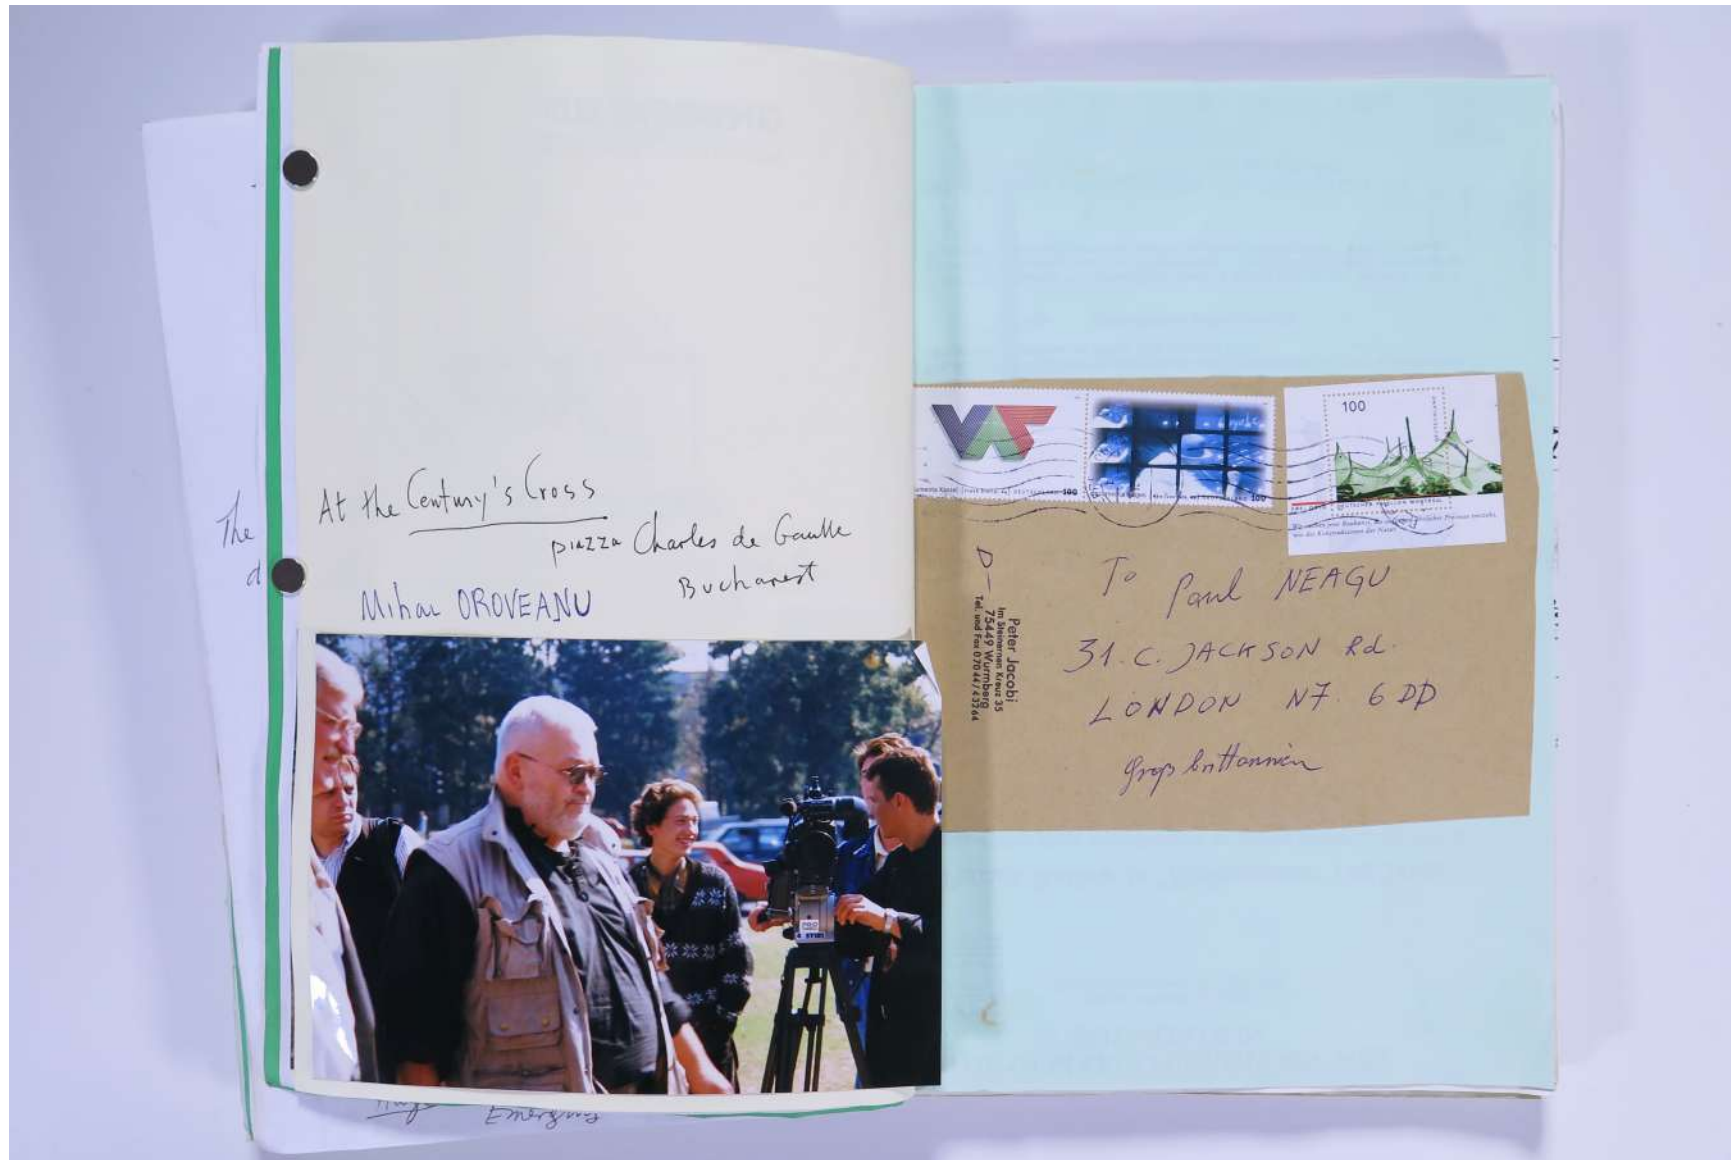 The
d
At the Century's Cross
piazza Charles de Gaulle
Bucharest
Mihai OROVEANU
Emerging
100
DEUTSCHLAND 100
100
D-
Peter Jacobi
Im Steinernen Kreuz 35
75449 Wurmberg
Tel. und Fax 07044/43264
To Paul NEAGU
31. C. JACKSON Rd.
LONDON N7. 6 DD
Großbrittannien